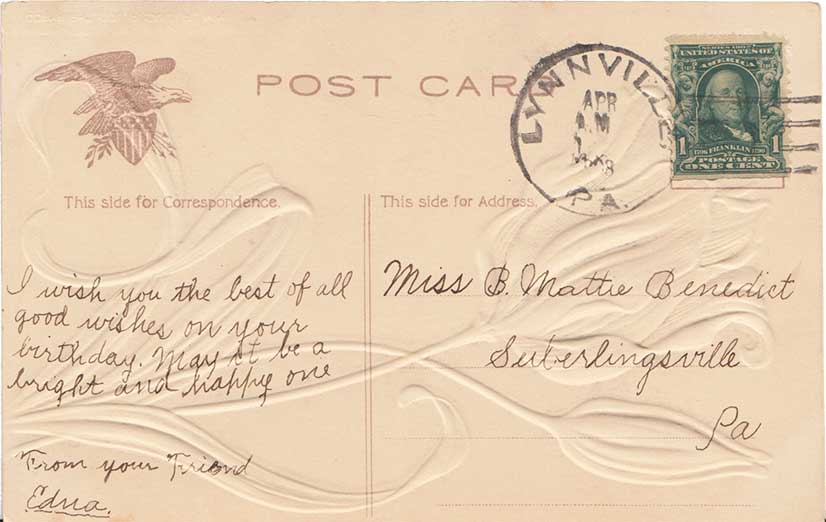 POST CARD
LYNNVILLE
APR
A.M
PA.
SERIES 1902
UNITED STATES OF
AMERICA
1 FRANKLIN 1
POSTAGE
ONE CENT
This side for Correspondence.
This side for Address.
I wish you the best of all
good wishes on your
birthday. May it be a
bright and happy one
From your Friend
Edna.
Miss B. Mattie Benedict
Seiberlingsville
Pa